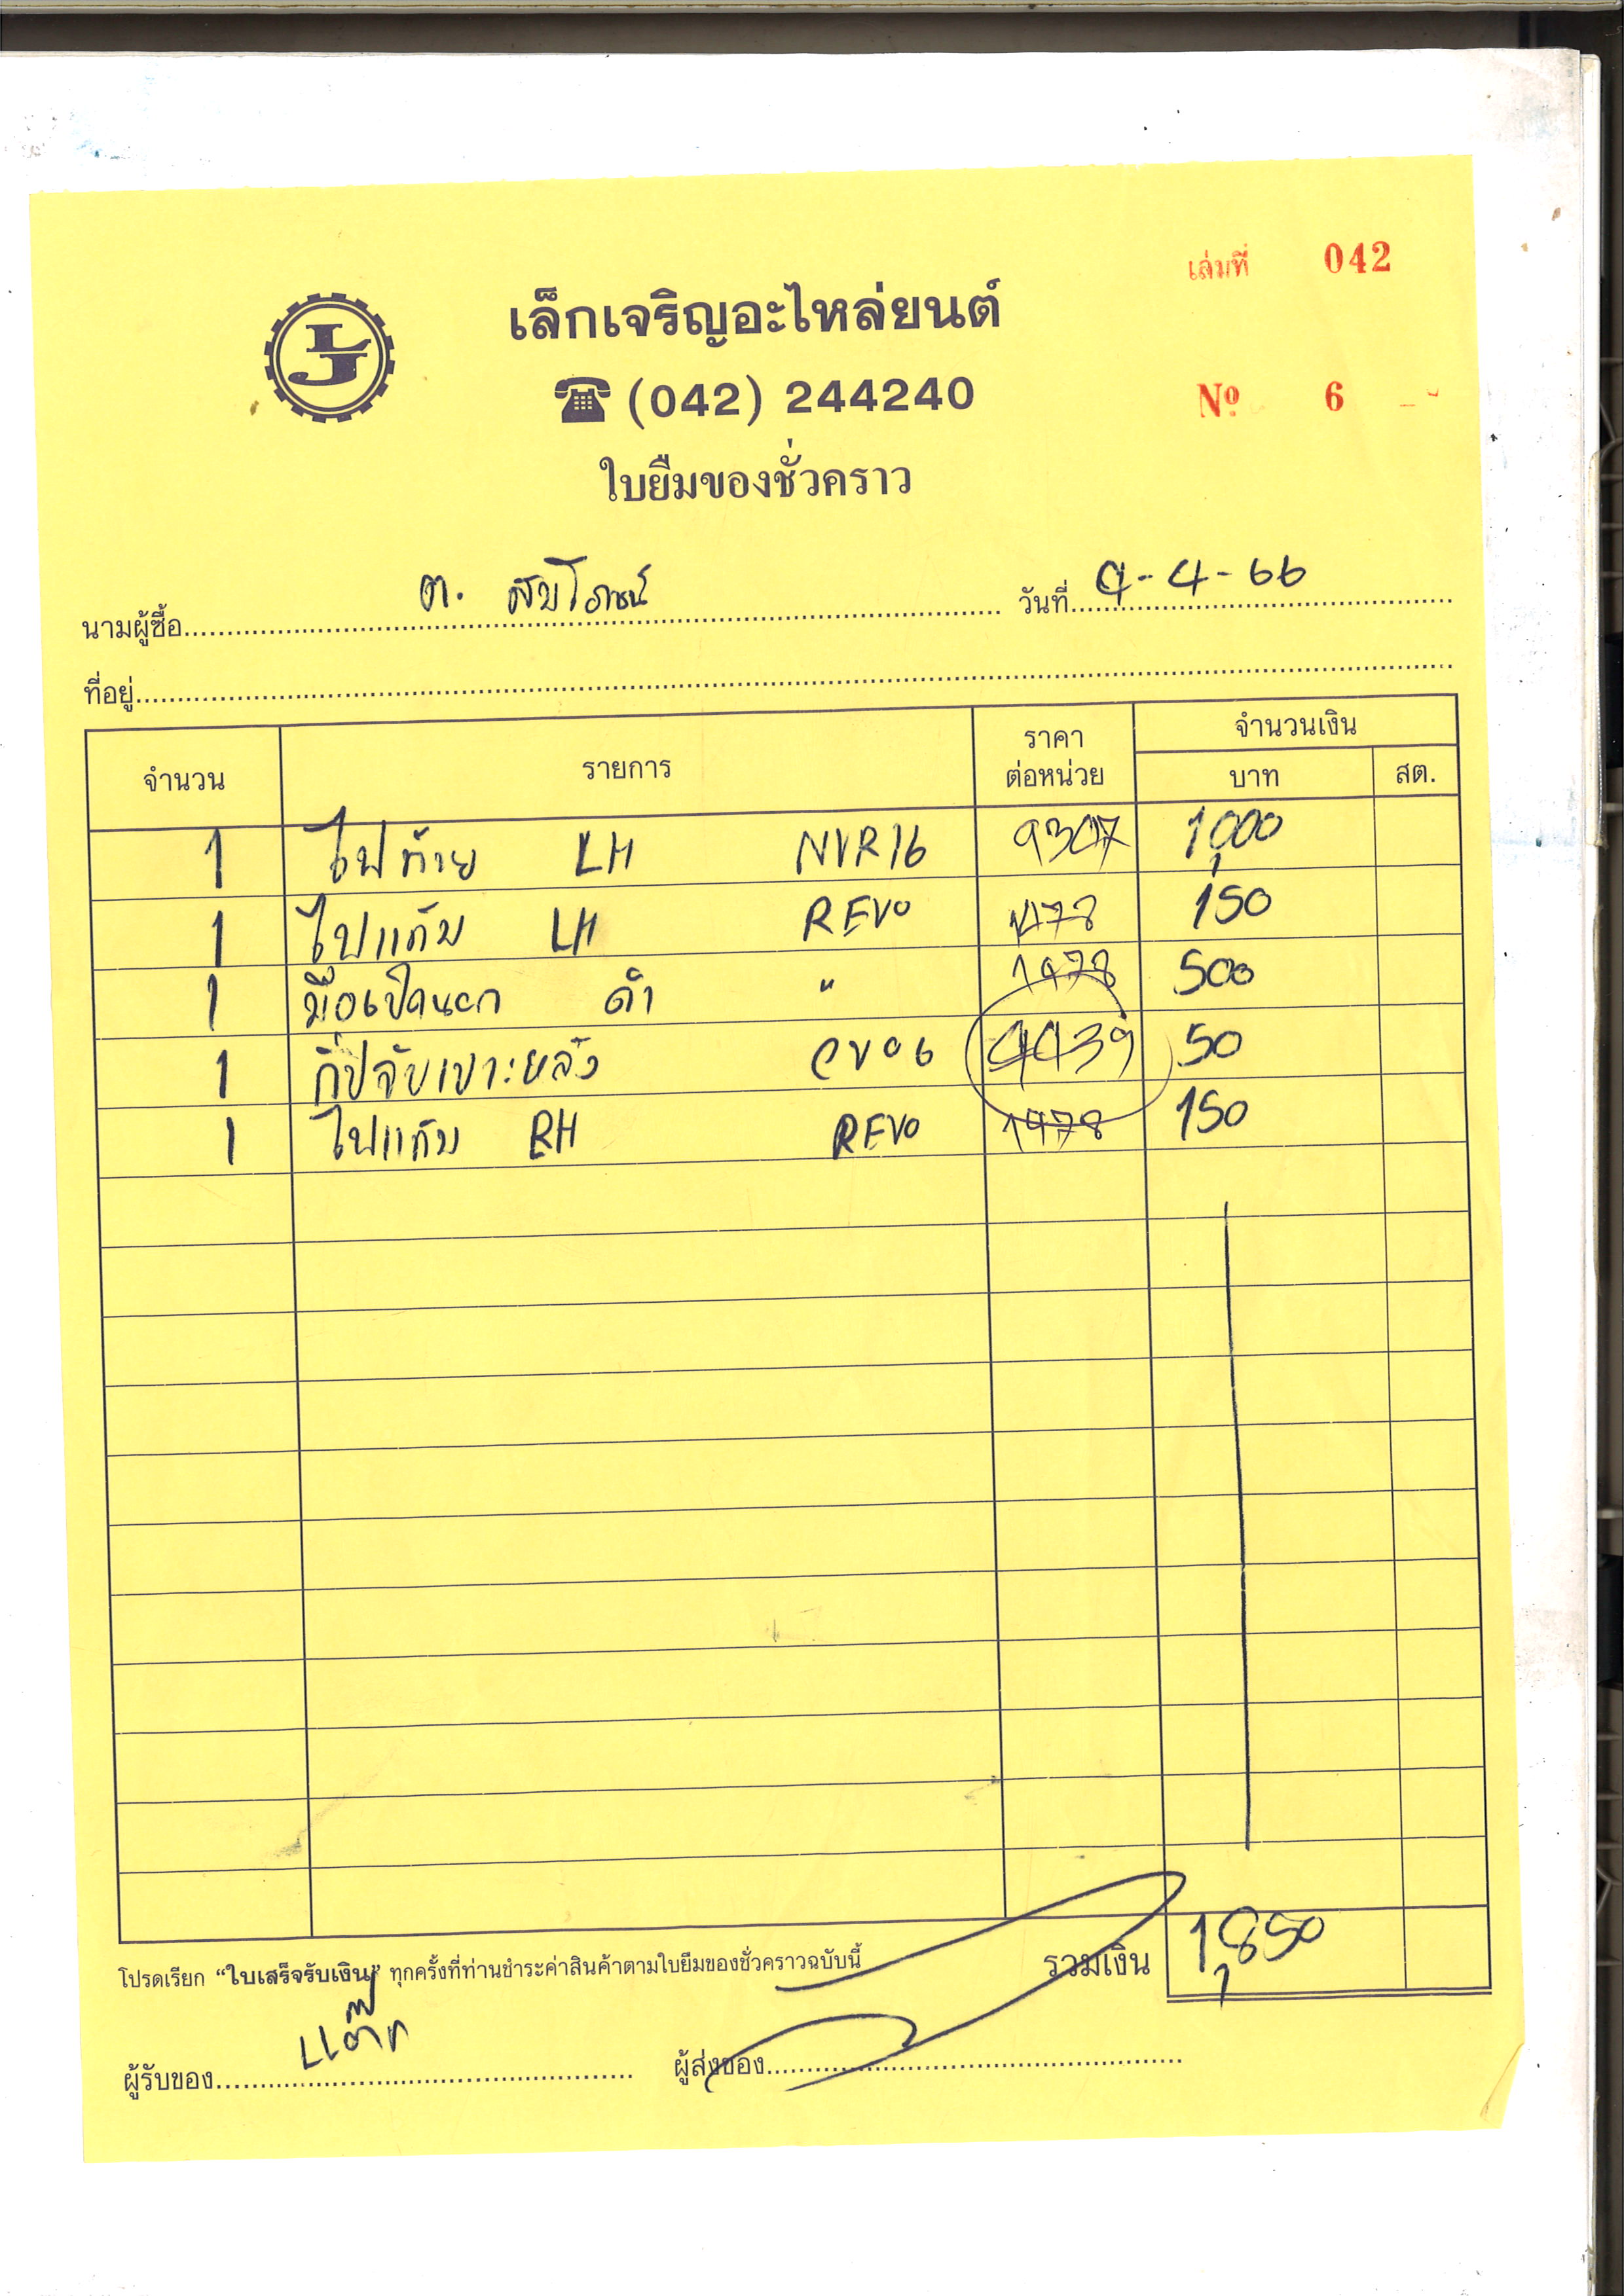 เล่มที่ 042
LJ
เล็กเจริญอะไหล่ยนต์
(042) 244240
Nº 6
ใบยืมของชั่วคราว
นามผู้ซื้อ ต. วันที่ 9-4-66
ที่อยู่
จำนวน รายการ ราคาต่อหน่วย จำนวนเงิน
บาท สต.
1 ไฟท้าย LH NVR16 9307 1,000
1 ไฟแก้ม LH REVO 1478 150
1 มือเปิดนอก ดำ " 1478 500
1 กิ๊ปจับเบาะหลัง 4439 50
1 ไฟแก้ม RH REVO 1478 150
โปรดเรียก “ใบเสร็จรับเงิน” ทุกครั้งที่ท่านชำระค่าสินค้าตามใบยืมของชั่วคราวฉบับนี้ รวมเงิน 1,850
ผู้รับของ ผู้ส่งของ